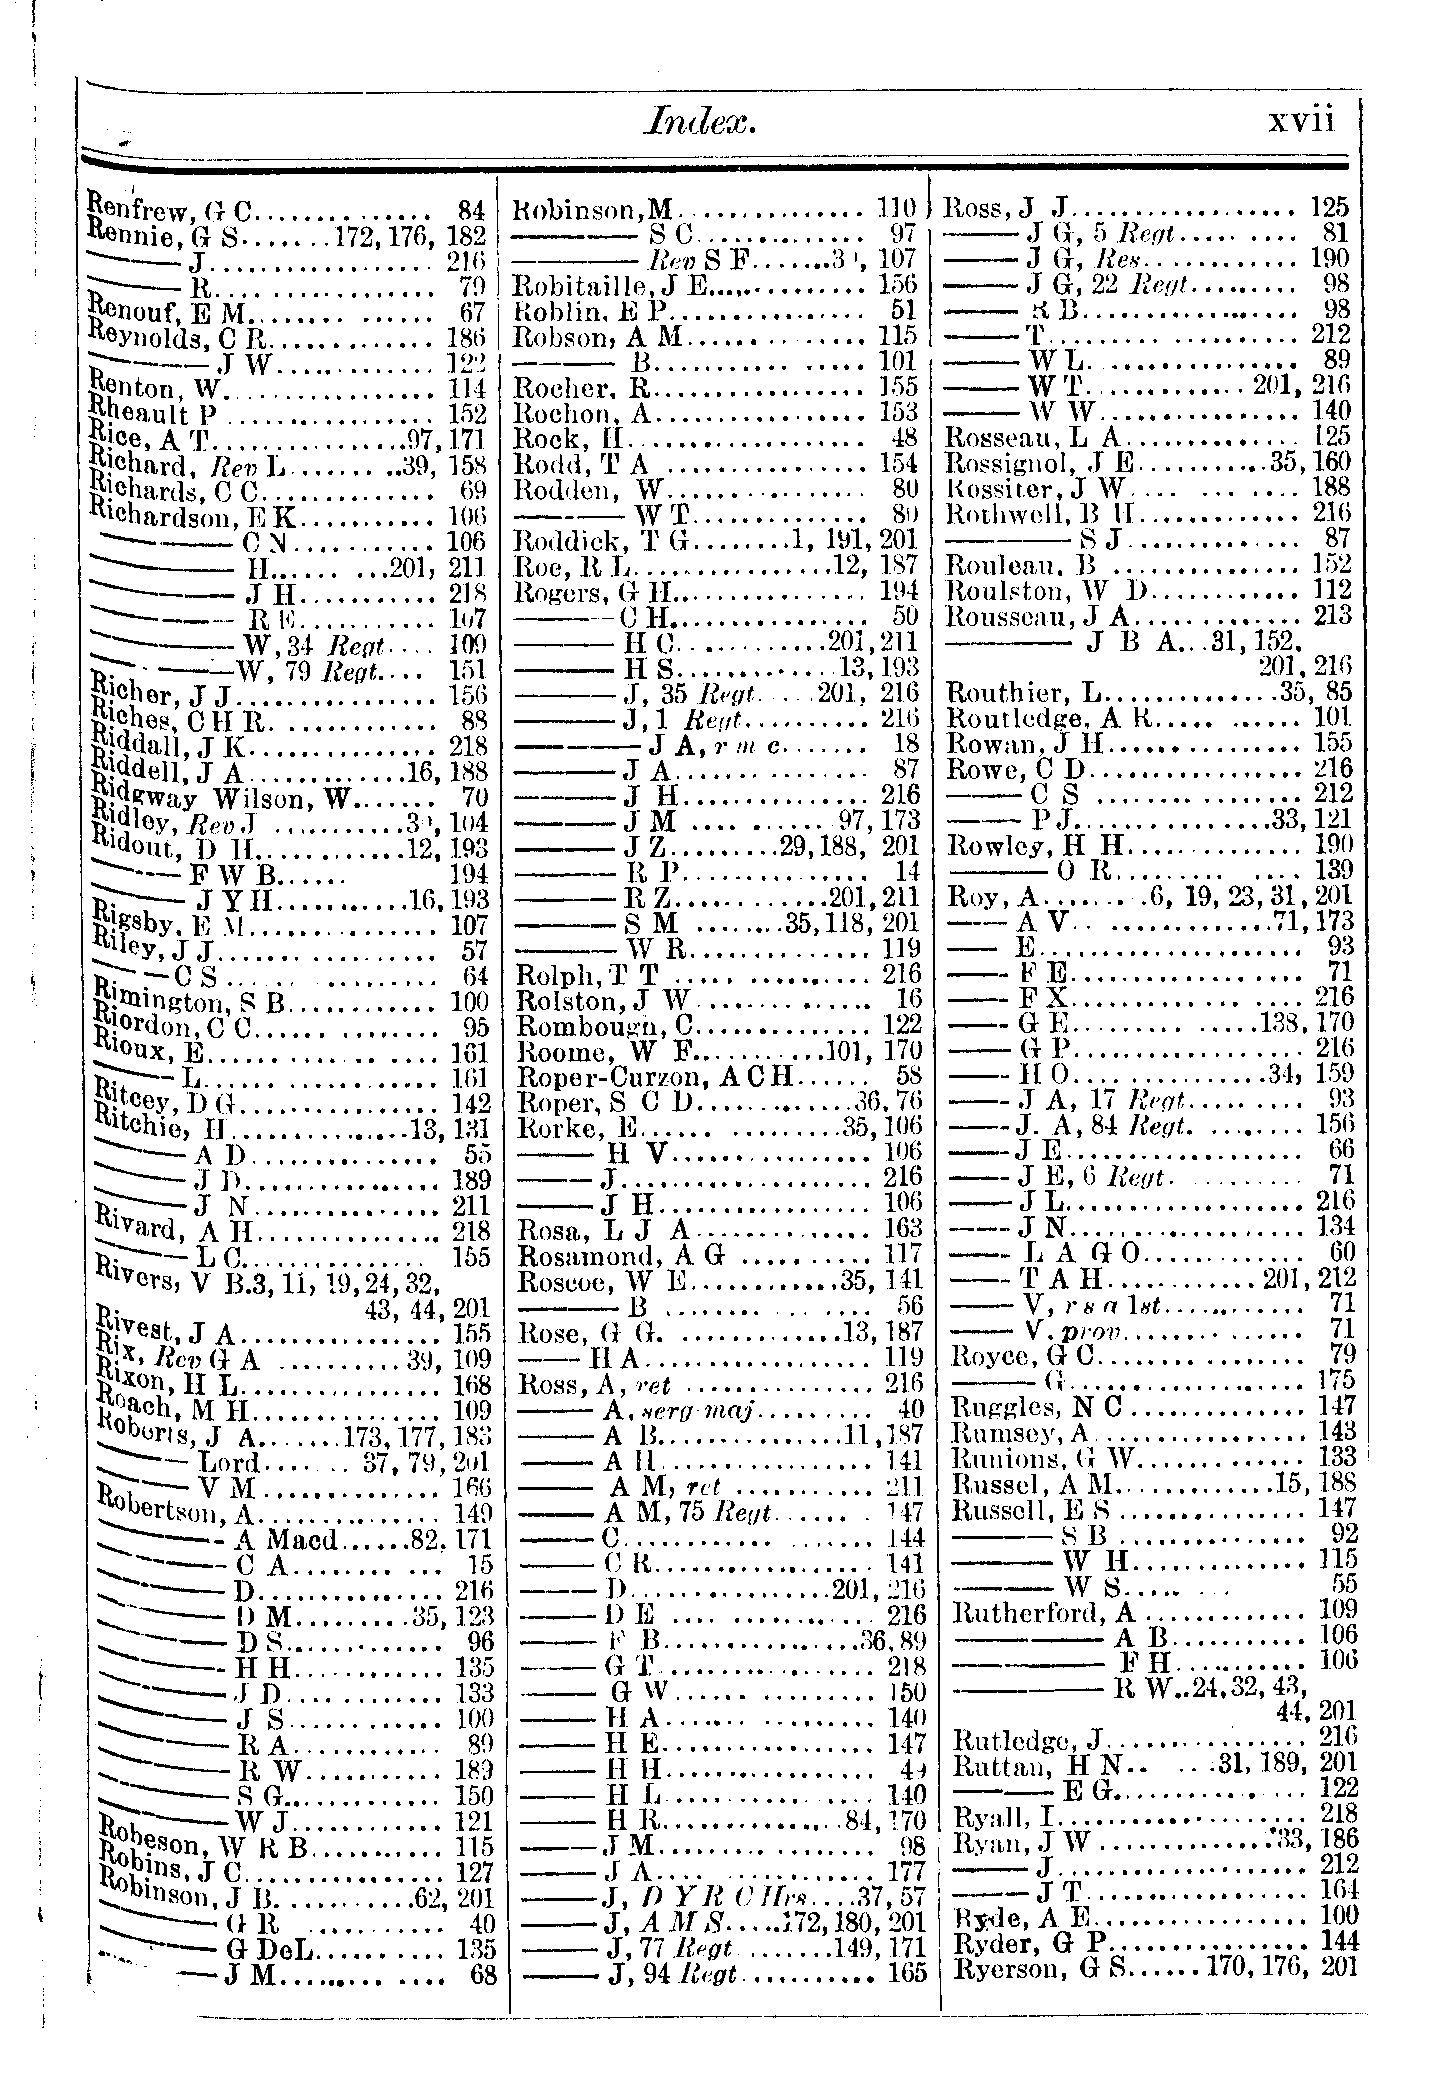 Index. xvii
Renfrew, G C.............. 84
Rennie, G S.......172, 176, 182
——— J................. 216
——— R................. 79
Renouf, E M............. 67
Reynolds, C R............. 186
——— J W............. 122
Renton, W................. 114
Rheault P ................. 152
Rice, A T................97, 171
Richard, Rev L.........39, 158
Richards, C C.............. 69
Richardson, E K........... 106
——— C N........... 106
——— H.........201, 211
——— J H........... 218
——— R E........... 107
——— W, 34 Regt.... 109
——— W, 79 Regt.... 151
Richer, J J................ 156
Riches, C H R............. 88
Riddall, J K............... 218
Riddell, J A.............16, 188
Ridgway Wilson, W....... 70
Ridley, Rev J ..........., 104
Ridout, D H............12, 193
——— F W B...... 194
——— J Y H...........16, 193
Rigsby, E M............... 107
Riley, J J.................. 57
——— C S.............. 64
Rimington, S B............ 100
Riordon, C C.............. 95
Rioux, E.................. 161
——— L................... 161
Ritcey, D G................ 142
Ritchie, H...............13, 131
——— A D................ 55
——— J D................ 189
——— J N............... 211
Rivard, A H............... 218
——— L C............... 155
Rivers, V B.3, 11, 19, 24, 32,
43, 44, 201
Rivest, J A................ 155
Rix, Rev G A ..........39, 109
Rixon, H L................ 168
Roach, M H............... 109
Roberts, J A.......173, 177, 183
——— Lord....... 37, 79, 201
——— V M.............. 166
Robertson, A.............. 149
——— A Macd......82, 171
——— C A........ ... 15
——— D............... 216
——— D M.........35, 123
——— D S............. 96
——— H H............ 135
——— J D............. 133
——— J S............. 100
——— R A............ 89
——— R W........... 189
——— S G............. 150
——— W J............ 121
Robeson, W R B........... 115
Robins, J C................ 127
Robinson, J B...........62, 201
——— G R ........... 40
——— G DeL.......... 135
——— J M............ 68
Robinson, M.............. 110
——— S C.............. 97
——— Rev S F......., 107
Robitaille, J E............. 156
Roblin, E P................ 51
Robson, A M.............. 115
——— B............... 101
Rocher, R................. 155
Rochon, A................. 153
Rock, H................... 48
Rodd, T A ................ 154
Rodden, W................ 80
——— W T.............. 80
Roddick, T G........1, 191, 201
Roe, R L................12, 187
Rogers, G H............... 194
——— C H................ 50
——— H C............201, 211
——— H S.............13, 193
——— J, 35 Regt.....201, 216
——— J, 1 Regt.......... 216
——— J A, r m c....... 18
——— J A............... 87
——— J H............... 216
——— J M .... ...... 97, 173
——— J Z.........29, 188, 201
——— R P............... 14
——— R Z............201, 211
——— S M ........35, 118, 201
——— W R............... 119
Rolph, T T ............... 216
Rolston, J W.............. 16
Rombough, C.............. 122
Roome, W F...........101, 170
Roper-Curzon, A C H...... 58
Roper, S C D............36, 76
Rorke, E...............35, 106
——— H V................ 106
——— J.................... 216
——— J H................. 106
Rosa, L J A............... 163
Rosamond, A G ........... 117
Roscoe, W E............35, 141
——— B ................ 56
Rose, G G. .............13, 187
——— H A................. 119
Ross, A, ret ............... 216
——— A, serg-maj......... 40
——— A B...............11, 187
——— A H................. 141
——— A M, ret ........... 211
——— A M, 75 Regt...... . 147
——— C................... 144
——— C R................. 141
——— D................201, 216
——— D E ................ 216
——— F B................36, 89
——— G T................. 218
——— G W................ 150
——— H A................. 140
——— H E................. 147
——— H H................. 49
——— H L................. 140
——— H R..............84, 170
——— J M................. 98
——— J A................. 177
——— J, D Y R C Hrs....37, 57
——— J, A M S.....172, 180, 201
——— J, 77 Regt ........149, 171
——— J, 94 Regt........... 165
Ross, J J.................. 125
——— J G, 5 Regt.......... 81
——— J G, Res............ 190
——— J G, 22 Regt......... 98
——— R B................. 98
——— T................... 212
——— W L................. 89
——— W T.............201, 216
——— W W................ 140
Rosseau, L A.............. 125
Rossignol, J E...........35, 160
Rossiter, J W.............. 188
Rothwell, B H............. 216
——— S J............... 87
Rouleau, B ............... 152
Roulston, W D............ 112
Rousseau, J A............. 213
——— J B A...31, 152,
201, 216
Routhier, L..............35, 85
Routledge, A R............ 101
Rowan, J H............... 155
Rowe, C D................. 216
——— C S ................ 212
——— P J................33, 121
Rowley, H H.............. 190
——— O R............... 139
Roy, A.........6, 19, 23, 31, 201
—— A V...............71, 173
—— E..................... 93
—— F E................... 71
—— F X.................. 216
—— G E...............138, 170
—— G P................... 216
—— H O................34, 159
—— J A, 17 Regt.......... 93
—— J. A, 84 Regt. ........ 156
—— J E................... 66
—— J E, 6 Regt........... 71
—— J L................... 216
—— J N................... 134
—— L A G O............. 60
—— T A H............201, 212
—— V, r s a 1st........... 71
—— V, prov.............. 71
Royce, G C................ 79
——— G.................. 175
Ruggles, N C.............. 147
Rumsey, A................ 143
Runions, G W............. 133
Russel, A M.............15, 188
Russell, E S ............... 147
——— S B ............... 92
——— W H.............. 115
——— W S..... ... 55
Rutherford, A ............. 109
——— A B........... 106
——— F H........... 106
——— R W..24, 32, 43,
44, 201
Rutledge, J................ 216
Ruttan, H N.. ...31, 189, 201
——— E G.............. 122
Ryall, I................... 218
Ryan, J W ..............33, 186
——— J.................... 212
——— J T................. 164
Ryde, A E................. 100
Ryder, G P................ 144
Ryerson, G S......170, 176, 201